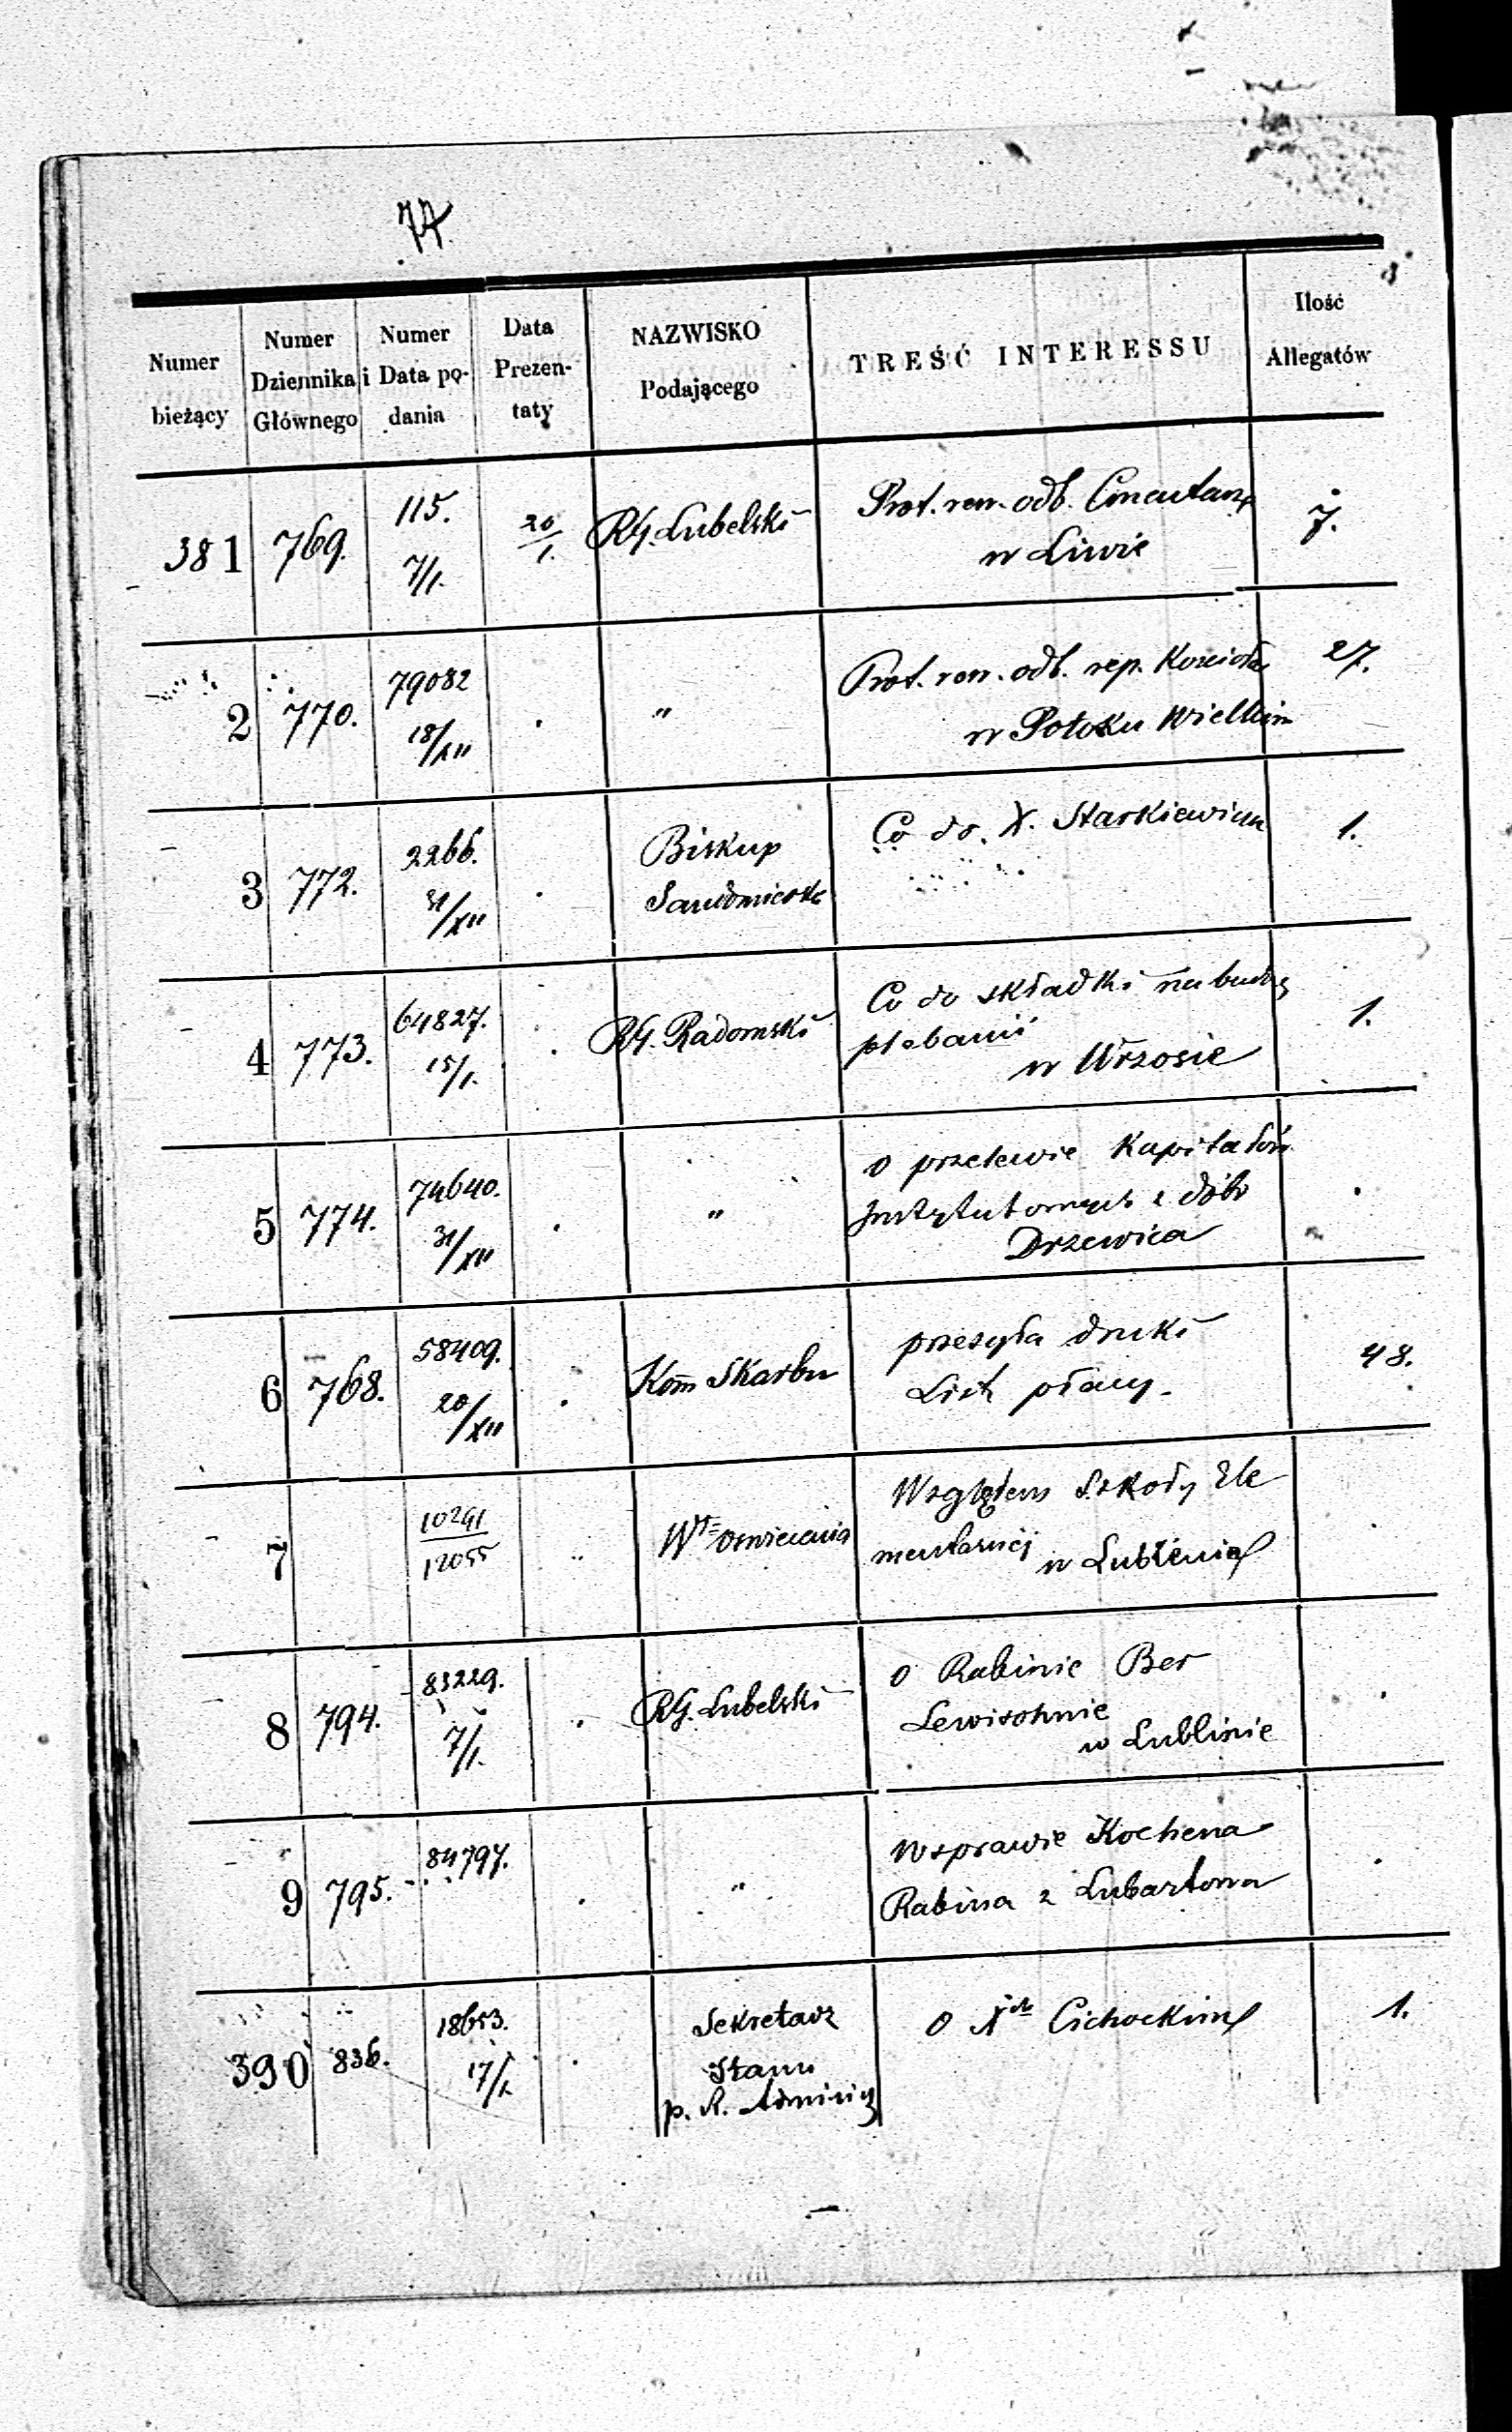 77.
Numer bieżący | Numer Dziennika Głównego | Numer i Data podania | Data Prezentaty | NAZWISKO Podającego | TREŚĆ INTERESSU | Ilość Allegatów
381 | 769. | 115. 7/1. | 20/1. | RG. Lubelski | Prot. rew. odb. Cmentarza
w Liwie | 7.
2 | 770. | 79082 18/XII | . | " | Prot. rew. odb. rep. Kościoła
w Potoku Wielkim | 27.
3 | 772. | 2266. 31/XII | . | Biskup Sandomierski | Co do X. Starkiewicza | 1.
4 | 773. | 64827. 15/1. | . | RG. Radomski | Co do składki na budo
plebanii
w Wrzosie | 1.
5 | 774. | 74640. 31/XII | . | " | o przelewie Kapitałów
Instytutowych z dóbr
Drzewica | .
6 | 768. | 58409. 20/XII | . | Kom Skarbu | przesyła druki
List płacy. | 48.
7 | 10291/12055 | " | Wł Oświecenia | Względem Szkoły Ele
mentarnej
w Lubieniu | .
8 | 794. | 83229. 7/1. | . | RG. Lubelski | o Rabinie Ber
Lewisohnie
w Lublinie | .
9 | 795. | 84797. | . | " | W sprawie Kochena
Rabina z Lubartowa | .
390 | 836. | 18653. 17/1. | . | Sekretarz
Stanu
p. R. Adminis | o Xdz Cichockim | 1.